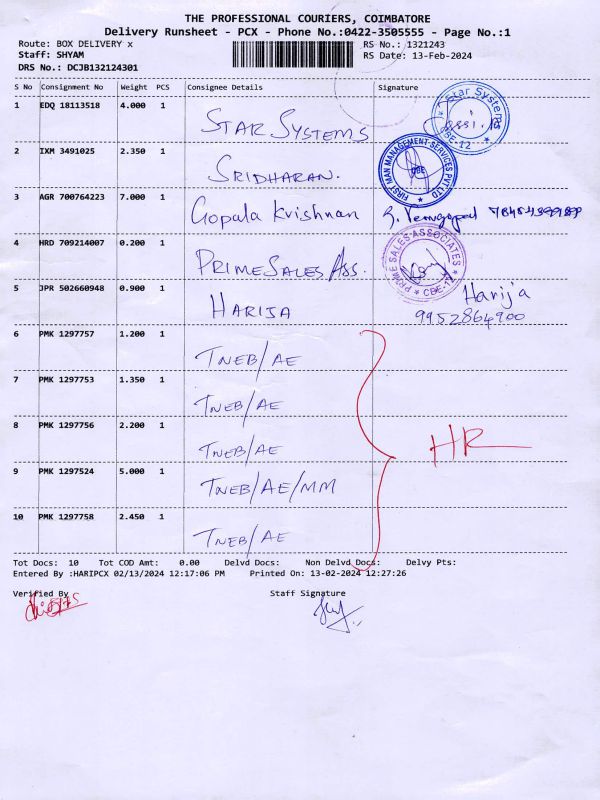 THE PROFESSIONAL COURIERS, COIMBATORE
Delivery Runsheet - PCX - Phone No.:0422-3505555 - Page No.:1
Route: BOX DELIVERY x RS No.: 1321243
Staff: SHYAM RS Date: 13-Feb-2024
DRS No.: DCJB132124301
S No Consignment No Weight PCS Consignee Details Signature
1 EDQ 18113518 4.000 1 STAR SYSTEMS
Star Systems
CBE-12
2 IXM 3491025 2.350 1 SRIDHARAN.
FIRST MAN MANAGEMENT SERVICES PVT LTD
CBE
3 AGR 700764223 7.000 1 Gopala Krishnan
4 HRD 709214007 0.200 1 PRIME SALES ASS.
PRIME SALES ASSOCIATES
CBE-12
5 JPR 502660948 0.900 1 HARIJA Harija
9952864900
6 PMK 1297757 1.200 1 TNEB/AE
7 PMK 1297753 1.350 1 TNEB/AE
8 PMK 1297756 2.200 1 TNEB/AE HR
9 PMK 1297524 5.000 1 TNEB/AE/MM
10 PMK 1297758 2.450 1 TNEB/AE
Tot Docs: 10 Tot COD Amt: 0.00 Delvd Docs: Non Delvd Docs: Delvy Pts:
Entered By :HARIPCX 02/13/2024 12:17:06 PM Printed On: 13-02-2024 12:27:26
Verified By Staff Signature